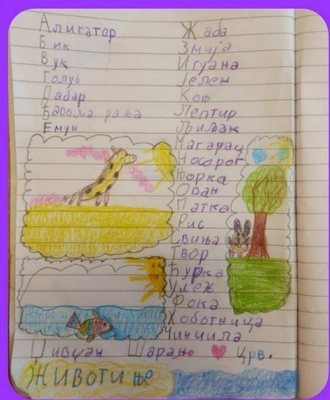 Алигатор
Бик
Вук
Голуб
Дабар
Ему
Жаба
Змија
Игуана
Јелен
Коњ
Лептир
Љиљак
Магарац
Носорог
Њорка
Ован
Патка
Рис
Свиња
Твор
Ћурка
Фока
Хоботница
Чинчила
Џивџан Шаран Црв.
ЖИВОТИЊЕ